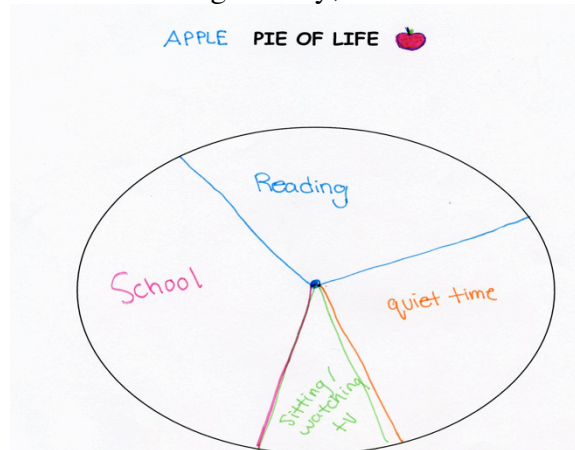 APPLE PIE OF LIFE
Reading
School
quiet time
Sitting/
watching
tv